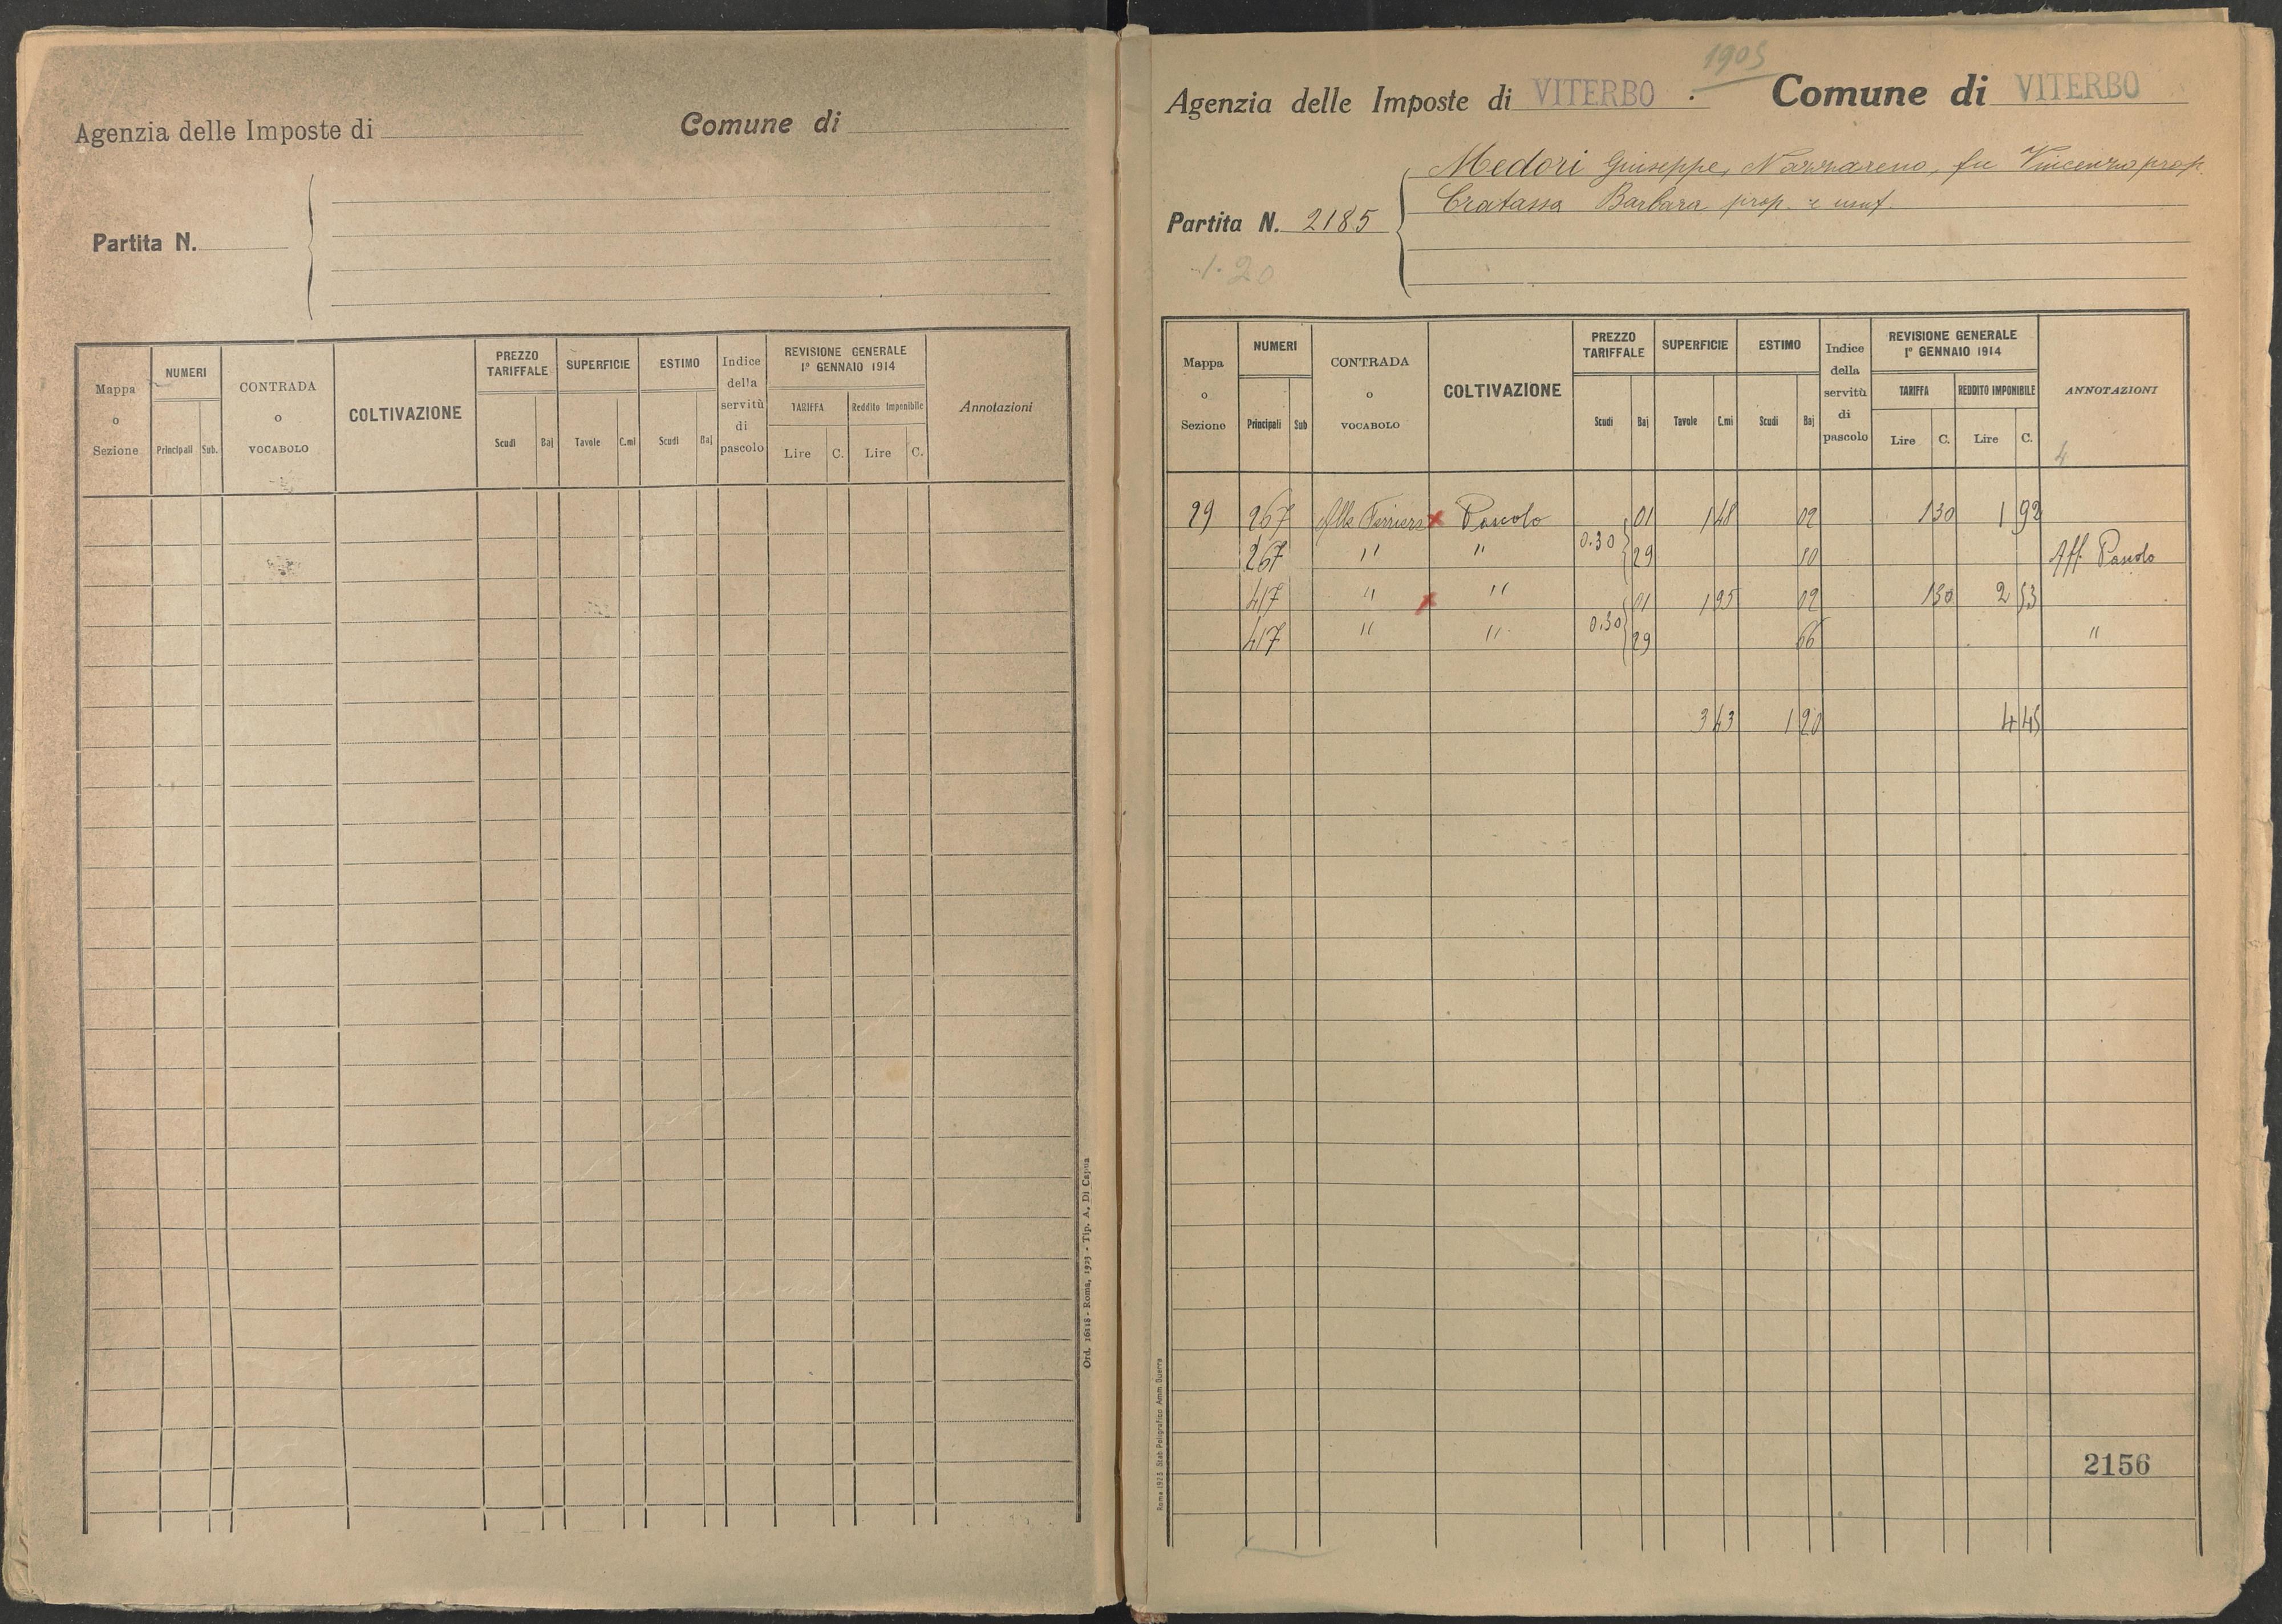 Agenzia delle Imposte di
Comune di
Partita N.
Mappa o Sezione
NUMERI
Principali
Sub.
CONTRADA o VOCABOLO
COLTIVAZIONE
PREZZO TARIFFALE
Scudi
Baj
SUPERFICIE
Tavole
C.mi
ESTIMO
Scudi
Baj
Indice della servitù di pascolo
REVISIONE GENERALE
1º GENNAIO 1914
TARIFFA
Reddito Imponibile
Lire
C.
Lire
C.
Annotazioni
Ord. 16118 - Roma, 1923 - Tip. A. Di Capua
1905
Agenzia delle Imposte di VITERBO
Comune di VITERBO
Medori Giuseppe, Nazzareno, fu Vincenzo prop.
Barbara prop. e usuf.
Partita N. 2185
1.20
Mappa o Sezione
NUMERI
Principali
Sub
CONTRADA o VOCABOLO
COLTIVAZIONE
PREZZO TARIFFALE
Scudi
Baj
SUPERFICIE
Tavole
C.mi
ESTIMO
Scudi
Baj
Indice della servitù di pascolo
REVISIONE GENERALE
1º GENNAIO 1914
TARIFFA
REDDITO IMPONIBILE
Lire
C.
Lire
C.
ANNOTAZIONI
4
29 267 Alla Ferriera x Pascolo 01 1 48 02 1 30 1 92
267 " " 0.30 29 10 Aff. Pascolo
417 " x " 01 1 95 02 1 30 2 53
417 " " 0.30 29 66 "
3 43 1 20 4 45
2156
Roma 1925 Stab. Poligrafico Amm. Guerra